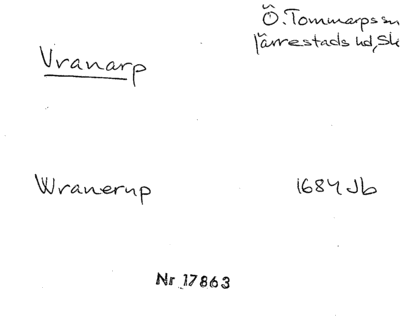 Ö. Tommarps sn
Järrestads hd, Sk
Vranarp
Wranerup 1684 Jb
Nr 17863